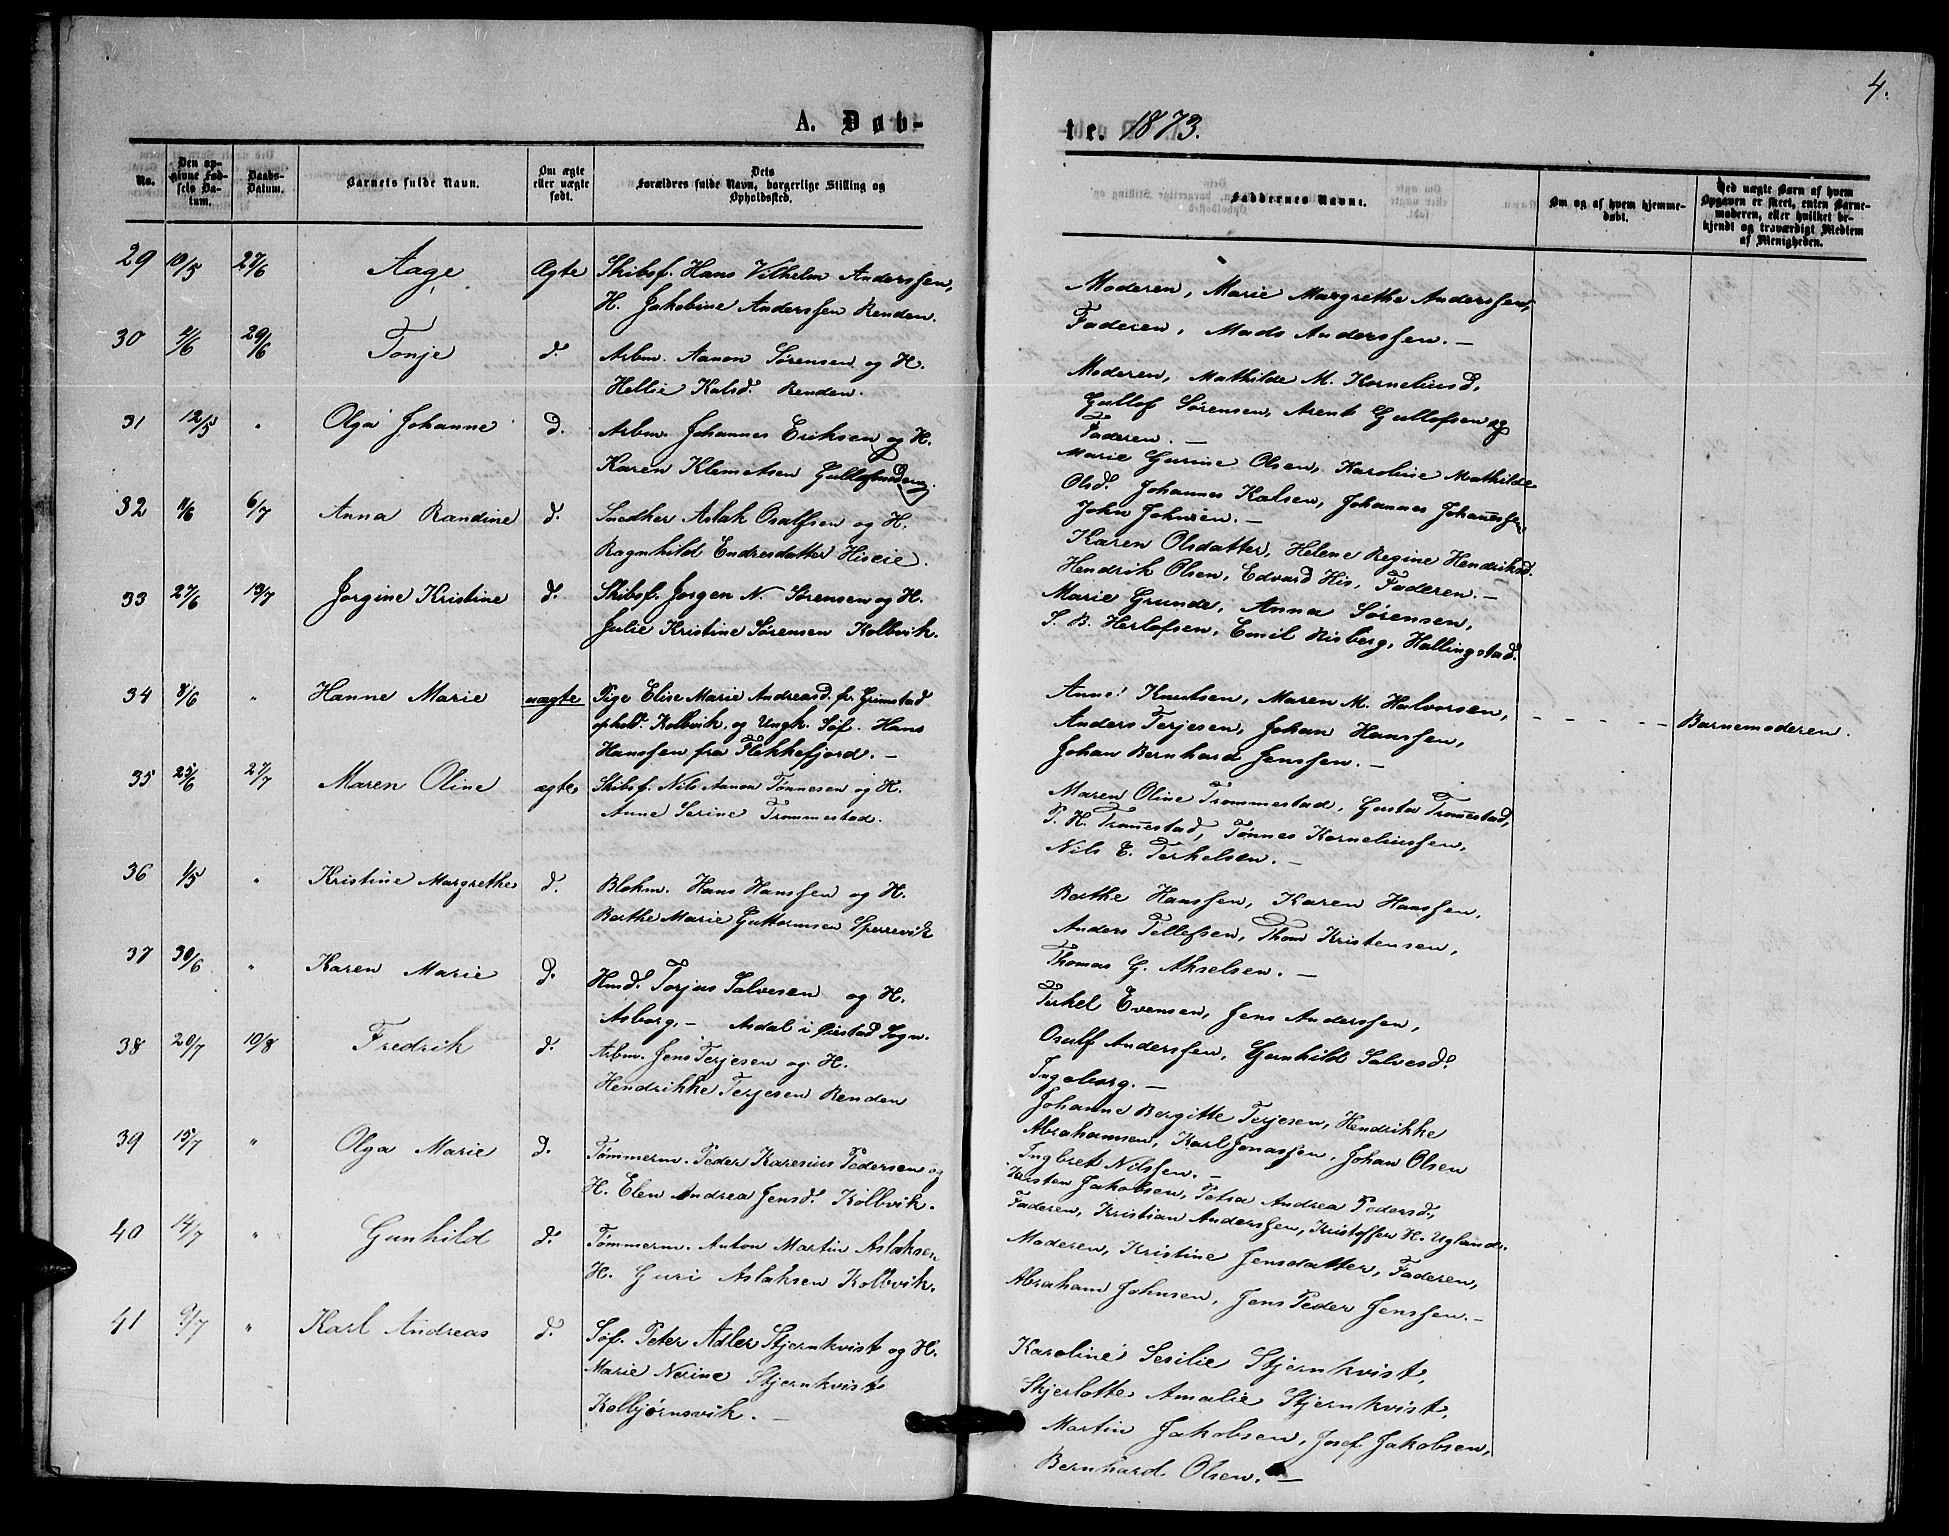 4.
A. Døb-
te. 1873.
No.
Den op-
givne Fød-
sels Da-
tum.
Daabs-
Datum.
Barnets fulde Navn.
Om ægte
eller uægte
født.
Dets
Forældres fulde Navn, borgerlige Stilling og
Opholdssted.
Faddernes Navne.
Om og af hvem hjemme-
døbt.
Ved uægte Børn af hvem
Opgaven er skeet, enten Barne-
moderen, eller hvilket be-
kjendt og troværdigt Medlem
af Menigheden.
29 10/5 27/6 Aage Ægte Skibsf. Hans Vilhelm Anderssen,
H. Jakobine Anderssen Renden.
Moderen, Marie Margrethe Anderssen,
Faderen, Mads Anderssen. —
30 29/6 Tonje d. Arbm. Aanon Sørensen og H.
Hellie Kalsd. Renden.
Moderen, Mathilde M. Korneliusd,
Gullof Sørensen, Arent Gullofsen og
Faderen. —
31 12/5 " Olga Johanne d. Arbm. Johannes Eriksen og H.
Karen Klemetsen
Marie Gurine Olsen, Karoline Mathilde
Olsd. Johannes Kalsen, Johannes Johanssen
John Johnsen. —
32 6/7 Anna Randine d. Snedker Aslak Osulfsen og H.
Ragnhild Endresdatter Hiseie.
Karen Olsdatter, Helene Regine Hendriksd.
Hendrik Olsen, Edvard His, Faderen. —
33 27/6 13/7 Jorgine Kristine d. Skibsf. Jorgen N. Sørensen og H.
Julie Kristine Sørensen Kolbvik.
Marie Grunde, Anna Sørensen,
S. B. Herlofsen, Emil Risberg, Hallingstad.
34 8/6 " Hanne Marie uægte Pige Elise Marie Andreasd. fr. Grimstad
ophold. Kolbvik, og Ungk. Søf. Hans
Hanssen fra Flekkefjord. —
Anne Knutsen, Maren M. Halvorsen,
Anders Terjesen, Johan Hanssen,
Johan Bernhard Jenssen. —
Barnemoderen.
35 25/6 27/7 Maren Oline ægte Skibsf. Nils Aanon Tønnesen og H.
Anne Serine Trommestad.
Maren Oline Trommestad, Gusta Tromestad,
T. H. Tromestad, Tønnes Korneliussen,
Nils E. Terkelsen. —
36 1/5 " Kristine Margrethe d. Blokm. Hans Hanssen og H.
Berthe Marie Guttormsen Sperrevik
Berthe Hanssen, Karen Hanssen,
Anders Tellefsen, Thom Kristensen,
Thomas G. Akselsen. —
37 30/6 " Karen Marie d. Hmd. Torjus Salvesen og H.
Asborg, — Asdal i Øiestad Sogn.
Terkel Evensen, Jens Anderssen,
Osulf Anderssen, Gunhild Salvesd.
Ingeborg. —
38 20/7 10/8 Fredrik d. Arbm. Jens Terjesen og H.
Hendrikke Terjesen Renden
Johanne Bergitte Terjesen, Hendrikke
Abrahamsen, Karl Jonassen, Johan Olsen
Ingbret Nilssen. —
39 15/7 " Olga Marie d. Tømmerm. Peder Karesius Pedersen og
H. Elen Andrea Jensd. Kolbvik.
Karsten Jakobsen, Petra Andrea Pedersd,
Faderen, Kristian Anderssen, Kristoffer H. Ugland.
40 14/7 " Gunhild d. Tømmerm. Anton Martin Aslaksen
H. Guri Aslaksen Kolbvik.
Moderen, Kristine Jensdatter, Faderen,
Abraham Johnsen, Jens Peder Jenssen. —
41 9/7 " Karl Andreas d. Søf. Peter Adler Stjernkvist og H.
Marie Nerine Stjernkvist
Kolbjørnsvik. —
Karoline Sesilie Stjernkvist,
Skjerlotte Amalie Stjernkvist,
Martin Jakobsen, Josef Jakobsen,
Bernhard Olsen. —